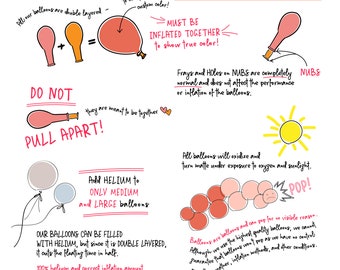 All our balloons are double layered
custom color!
MUST BE
INFLATED TOGETHER
to show true color!
DO NOT
PULL APART!
they are meant to be together
Frays and Holes on NUBS are completely
normal and does not affect the performance
or inflation of the balloons.
NUBS
All balloons will oxidize and
turn matte under exposure to oxygen and sunlight.
Add HELIUM to
ONLY MEDIUM
and LARGE balloons
OUR BALLOONS CAN BE FILLED
WITH HELIUM, but since it is DOUBLE LAYERED,
it cuts the floating time in half.
100% helium and correct inflation amount
POP!
Balloons are balloons and can pop for no visible reason.
Although we use the highest quality balloons, we cannot
guarantee that balloons won't pop as we have no control
inflation, inflation methods, and other conditions.